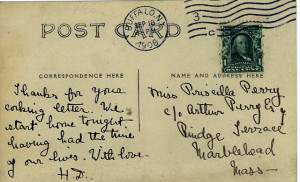 POST CARD
BUFFALO, N.Y.
SEP 10
1908
3
CORRESPONDENCE HERE
NAME AND ADDRESS HERE
Thanks for your
corking letter. We
start home tonight
having had the time
of our lives. With love.
H.D.
Miss Priscilla Perry
c/o Arthur Perry Esq
Ridge Terrace
Marblehead
Mass-